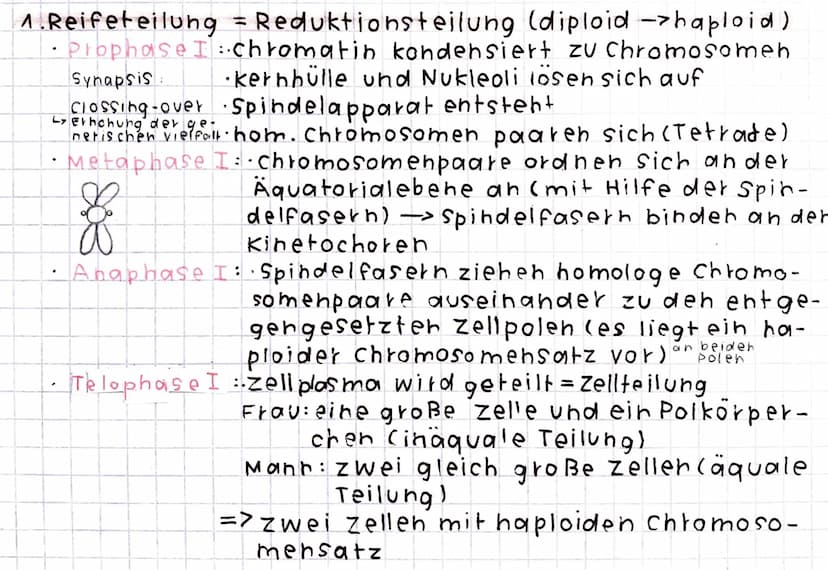 1. Reifeteilung = Reduktionsteilung (diploid -> haploid)
· Prophase I : · chromatin kondensiert zu Chromosomen
Synapsis : · Kernhülle und Nukleoli lösen sich auf
Clossing-over · Spindelapparat entsteht
↳ Erhöhung der ge-
netischen Vielfalt · hom. Chromosomen paaren sich (Tetrade)
· Metaphase I : · Chromosomenpaare ordnen sich an der
Äquatorialebene an (mit Hilfe der Spin-
delfasern) -> Spindelfasern binden an den
Kinetochoren
· Anaphase I : · Spindelfasern ziehen homologe Chromo-
somenpaare auseinander zu den entge-
gengesetzten Zellpolen (es liegt ein ha-
ploider Chromosomensatz vor) an beiden
Polen
· Telophase I : · Zellplasma wird geteilt = Zellteilung
Frau: eine große Zelle und ein Polkörper-
chen (inäquale Teilung)
Mann: zwei gleich große Zellen (äquale
Teilung)
=> zwei Zellen mit haploiden Chromoso-
mensatz